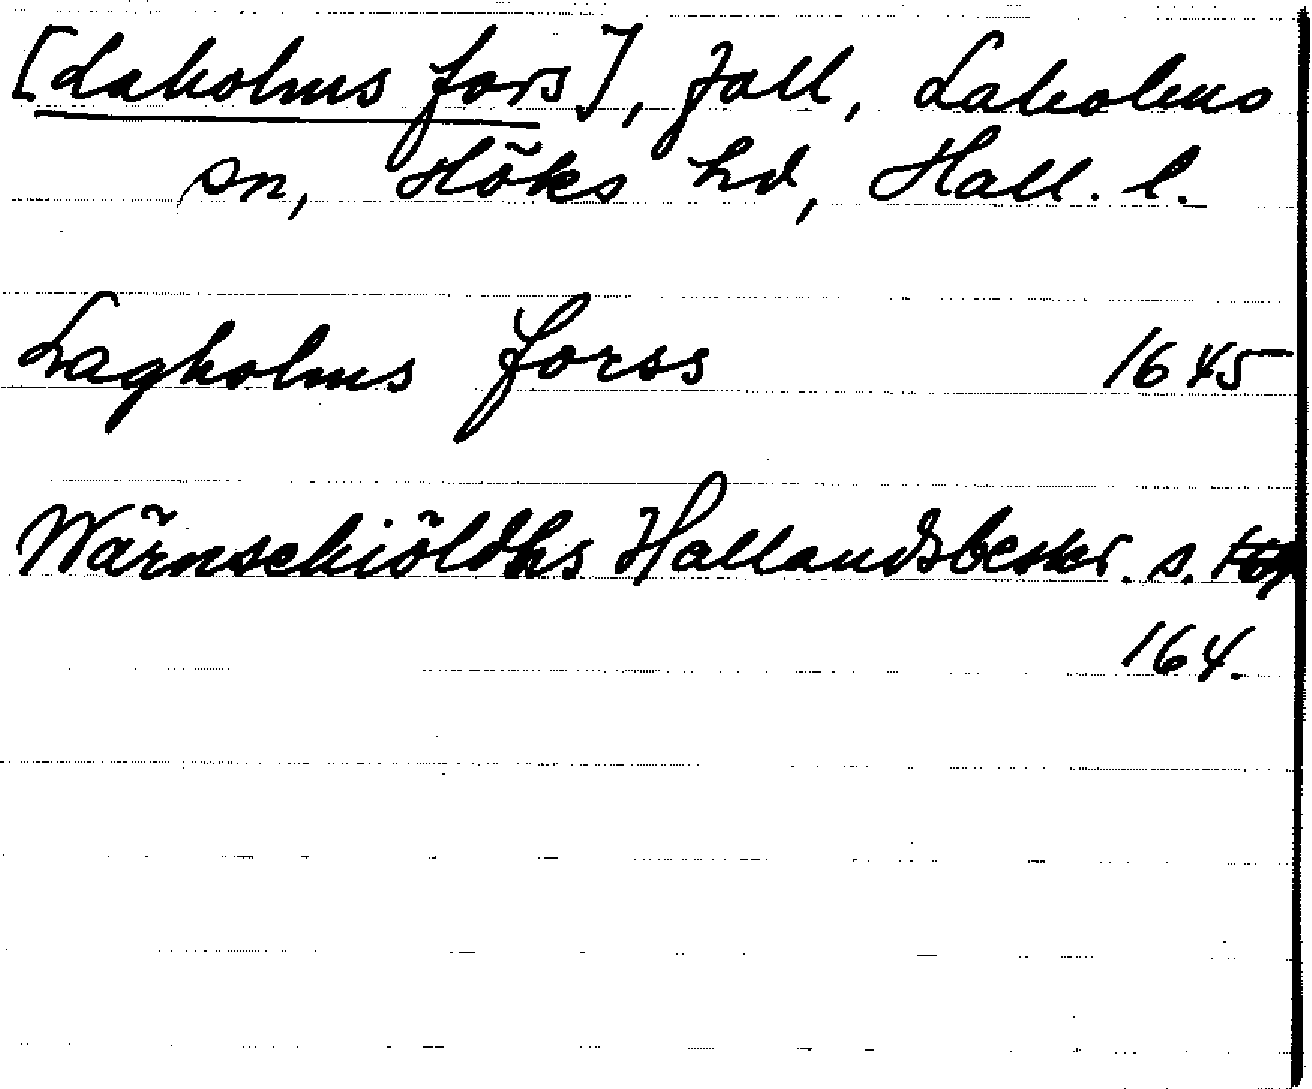 [Laholms fors], fall, Laholms
sn, Höks hd, Hall. l.
Lagholms forss 1645
Wärnschiöldhs Hallandsbeskr. s.
164.